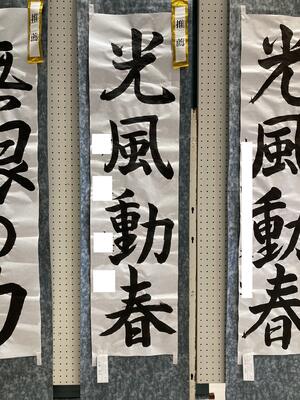 光風動春
推薦
光風動春
推薦
の力